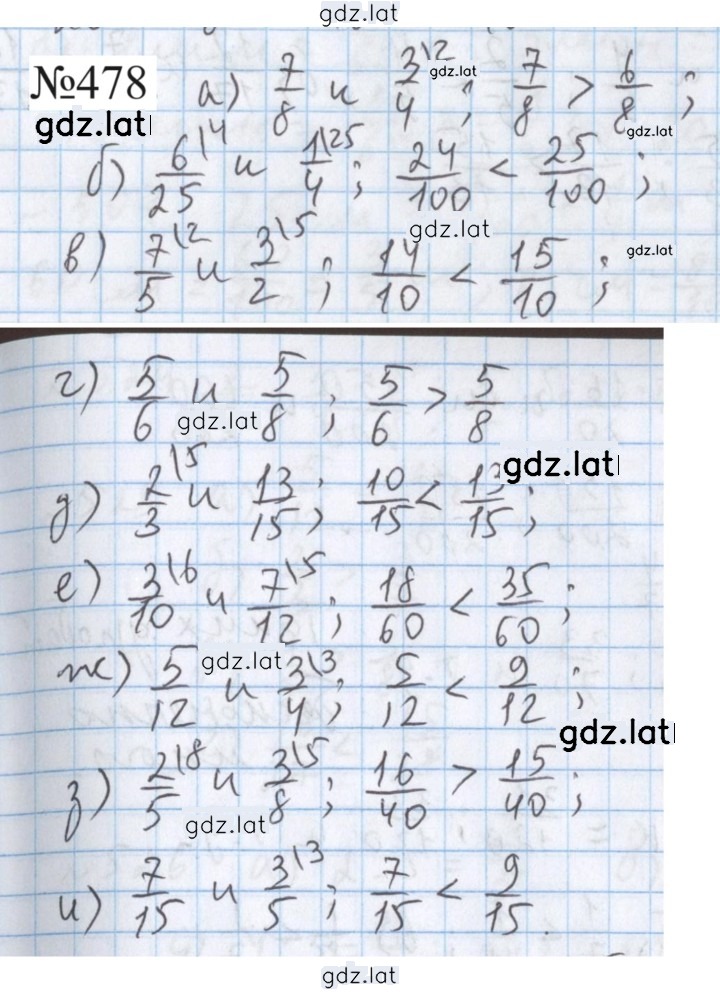 gdz.lat
№478 а) 7/8 и 3/4 \2 ; 7/8 > 6/8 ;
gdz.lat
gdz.lat
gdz.lat
б) 6/25 \4 и 1/4 \25 ; 24/100 < 25/100 ;
gdz.lat
в) 7/5 \2 и 3/2 \5 ; 14/10 < 15/10 ;
gdz.lat
г) 5/6 и 5/8 ; 5/6 > 5/8
gdz.lat
gdz.lat
д) 2/3 \5 и 13/15 ; 10/15 < 13/15 ;
е) 3/10 \6 и 7/12 \5 ; 18/60 < 35/60 ;
gdz.lat
ж) 5/12 и 3/4 \3 ; 5/12 < 9/12 ;
gdz.lat
з) 2/5 \8 и 3/8 \5 ; 16/40 > 15/40 ;
gdz.lat
и) 7/15 и 3/5 \3 ; 7/15 < 9/15 .
gdz.lat